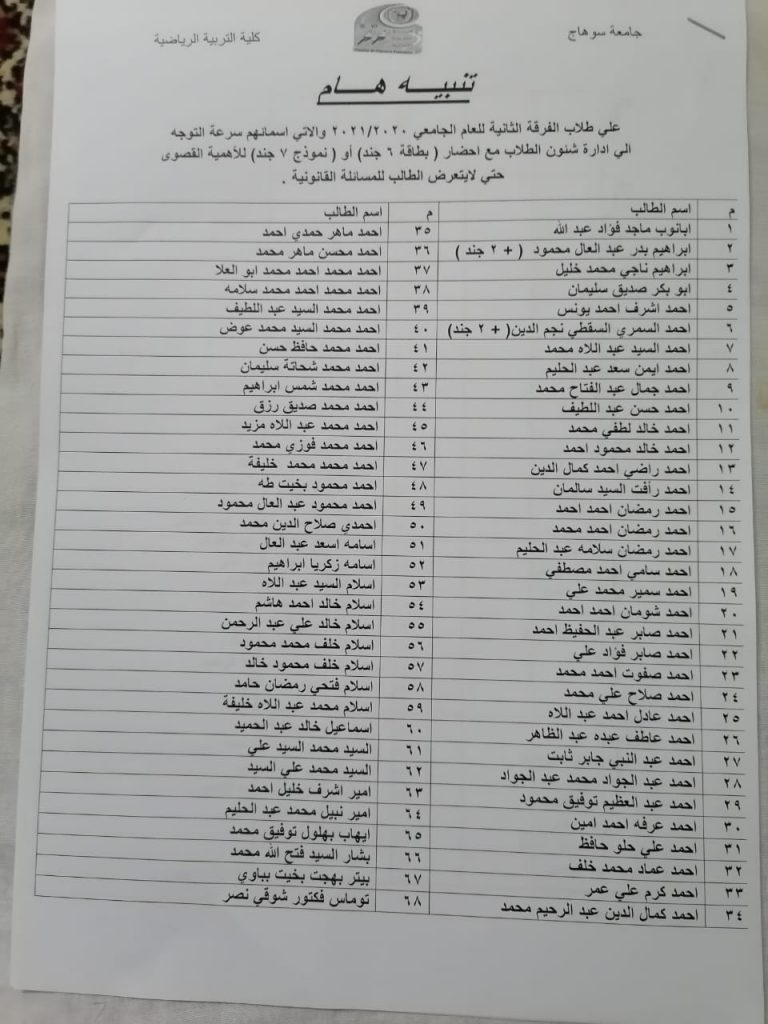 جامعة سوهاج
كلية التربية الرياضية
تنبيه هام
علي طلاب الفرقة الثانية للعام الجامعي ٢٠٢١/٢٠٢٠ والاتي اسمائهم سرعة التوجه
الي ادارة شئون الطلاب مع احضار ( بطاقة ٦ جند) أو ( نموذج ٧ جند) للأهمية القصوى
حتي لايتعرض الطالب للمسائلة القانونية .
م اسم الطالب م اسم الطالب
١ ابانوب ماجد فؤاد عبد الله ٣٥ احمد ماهر حمدي احمد
٢ ابراهيم بدر عبد العال محمود ( + ٢ جند ) ٣٦ احمد محسن ماهر محمد
٣ ابراهيم ناجي محمد خليل ٣٧ احمد محمد احمد محمد ابو العلا
٤ ابو بكر صديق سليمان ٣٨ احمد محمد احمد محمد سلامه
٥ احمد اشرف احمد يونس ٣٩ احمد محمد السيد عبد اللطيف
٦ احمد السمري السقطي نجم الدين( + ٢ جند) ٤٠ احمد محمد السيد محمد عوض
٧ احمد السيد عبد اللاه محمد ٤١ احمد محمد حافظ حسن
٨ احمد ايمن سعد عبد الحليم ٤٢ احمد محمد شحاتة سليمان
٩ احمد جمال عبد الفتاح محمد ٤٣ احمد محمد شمس ابراهيم
١٠ احمد حسن عبد اللطيف ٤٤ احمد محمد صديق رزق
١١ احمد خالد لطفي محمد ٤٥ احمد محمد عبد اللاه مزيد
١٢ احمد خالد محمود احمد ٤٦ احمد محمد فوزي محمد
١٣ احمد راضي احمد كمال الدين ٤٧ احمد محمد محمد خليفة
١٤ احمد رأفت السيد سالمان ٤٨ احمد محمود بخيت طه
١٥ احمد رمضان احمد احمد ٤٩ احمد محمود عبد العال محمود
١٦ احمد رمضان احمد محمد ٥٠ احمدي صلاح الدين محمد
١٧ احمد رمضان سلامه عبد الحليم ٥١ اسامه اسعد عبد العال
١٨ احمد سامي احمد مصطفي ٥٢ اسامه زكريا ابراهيم
١٩ احمد سمير محمد علي ٥٣ اسلام السيد عبد اللاه
٢٠ احمد شومان احمد احمد ٥٤ اسلام خالد احمد هاشم
٢١ احمد صابر عبد الحفيظ احمد ٥٥ اسلام خالد علي عبد الرحمن
٢٢ احمد صابر فؤاد علي ٥٦ اسلام خلف محمد محمود
٢٣ احمد صفوت احمد محمد ٥٧ اسلام خلف محمود خالد
٢٤ احمد صلاح علي محمد ٥٨ اسلام فتحي رمضان حامد
٢٥ احمد عادل احمد عبد اللاه ٥٩ اسلام محمد عبد اللاه خليفة
٢٦ احمد عاطف عبده عبد الظاهر ٦٠ اسماعيل خالد عبد الحميد
٢٧ احمد عبد النبي جابر ثابت ٦١ السيد محمد السيد علي
٢٨ احمد عبد الجواد محمد عبد الجواد ٦٢ السيد محمد علي السيد
٢٩ احمد عبد العظيم توفيق محمود ٦٣ امير اشرف خليل احمد
٣٠ احمد عرفه احمد امين ٦٤ امير نبيل محمد عبد الحليم
٣١ احمد علي حلو حافظ ٦٥ ايهاب بهلول توفيق محمد
٣٢ احمد عماد محمد خلف ٦٦ بشار السيد فتح الله محمد
٣٣ احمد كرم علي عمر ٦٧ بيتر بهجت بخيت بباوي
٣٤ احمد كمال الدين عبد الرحيم محمد ٦٨ توماس فكتور شوقي نصر